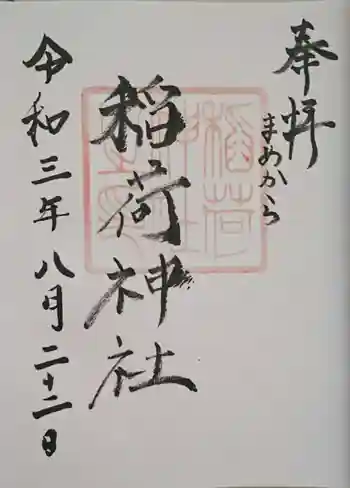 奉拝
まめから
稲荷神社
令和三年八月二十二日
稲荷
神社